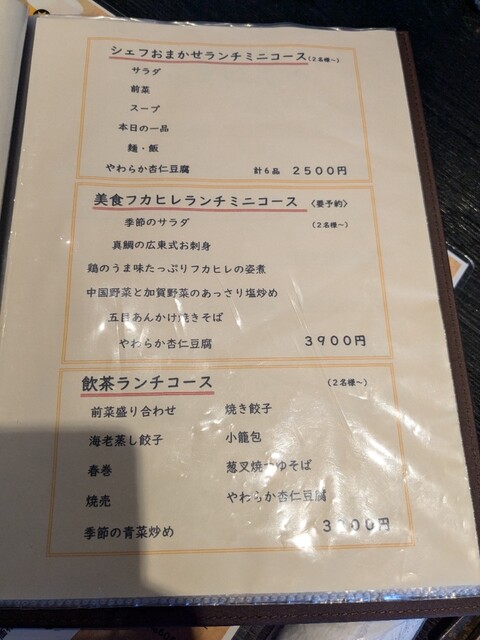 シェフおまかせランチミニコース(2名様~)
サラダ
前菜
スープ
本日の一品
麺・飯
やわらか杏仁豆腐 計6品 2500円
美食フカヒレランチミニコース 〈要予約〉
季節のサラダ (2名様~)
真鯛の広東式お刺身
鶏のうま味たっぷりフカヒレの姿煮
中国野菜と加賀野菜のあっさり塩炒め
五目あんかけ焼きそば
やわらか杏仁豆腐 3900円
飲茶ランチコース (2名様~)
前菜盛り合わせ 焼き餃子
海老蒸し餃子 小籠包
春巻
焼売 やわらか杏仁豆腐
季節の青菜炒め